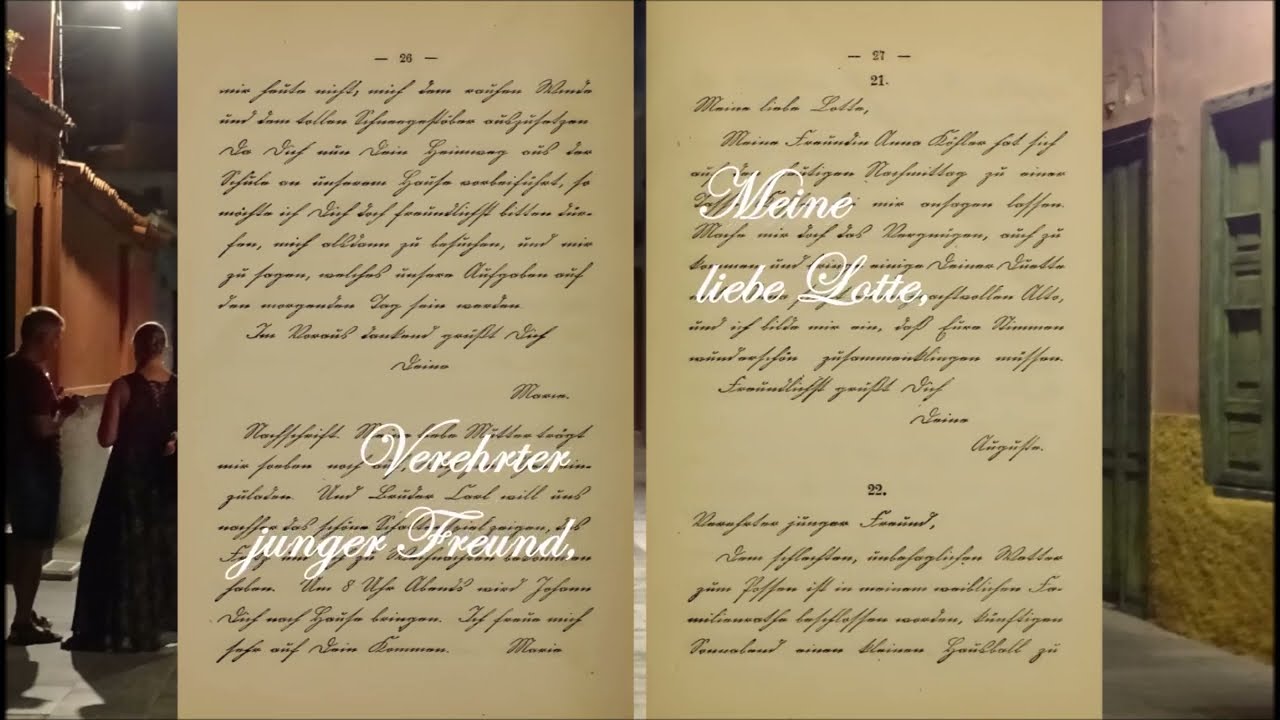 — 26 —
mir heute nicht, mich dem rauhen Winde
und dem tollen Schneegestöber auszusetzen
Da Dich nun Dein Heimweg aus der
Schule an unserem Hause vorbeiführt, so
möchte ich Dich doch freundlichst bitten dür-
fen, mich alsdann zu besuchen, und mir
zu sagen, welches unsere Aufgaben auf
den morgenden Tag sein werden.
Im Voraus dankend grüßt Dich
Deine
Marie.
Nachschrift. Meine liebe Mutter trägt
mir soeben noch auf,
zuladen. Und Bruder Carl will uns
nachher das schöne zeigen, das
Fritz zu Weihnachten bekommen
haben. Um 8 Uhr Abends wird Johann
Dich nach Hause bringen. Ich freue mich
sehr auf Dein Kommen. Marie
Verehrter
junger Freund,
— 27 —
21.
Meine liebe Lotte,
Meine Freundin Anna Köhler hat sich
auf den heutigen Nachmittag zu einer
Tasse bei mir ansagen lassen.
Mache mir doch das Vergnügen, auch zu
kommen und bringe einige Deiner Duette
prachtvollen Alto,
und ich bilde mir ein, daß Eure Stimmen
wunderschön zusammenklingen müssen.
Freundlichst grüßt Dich
Deine
Auguste.
22.
Verehrter junger Freund,
Dem schlechten, unbehaglichen Wetter
zum Possen ist in meinem weiblichen Fa-
milienrathe beschlossen worden, künftigen
Sonnabend einen kleinen Hausball zu
Meine
liebe Lotte,